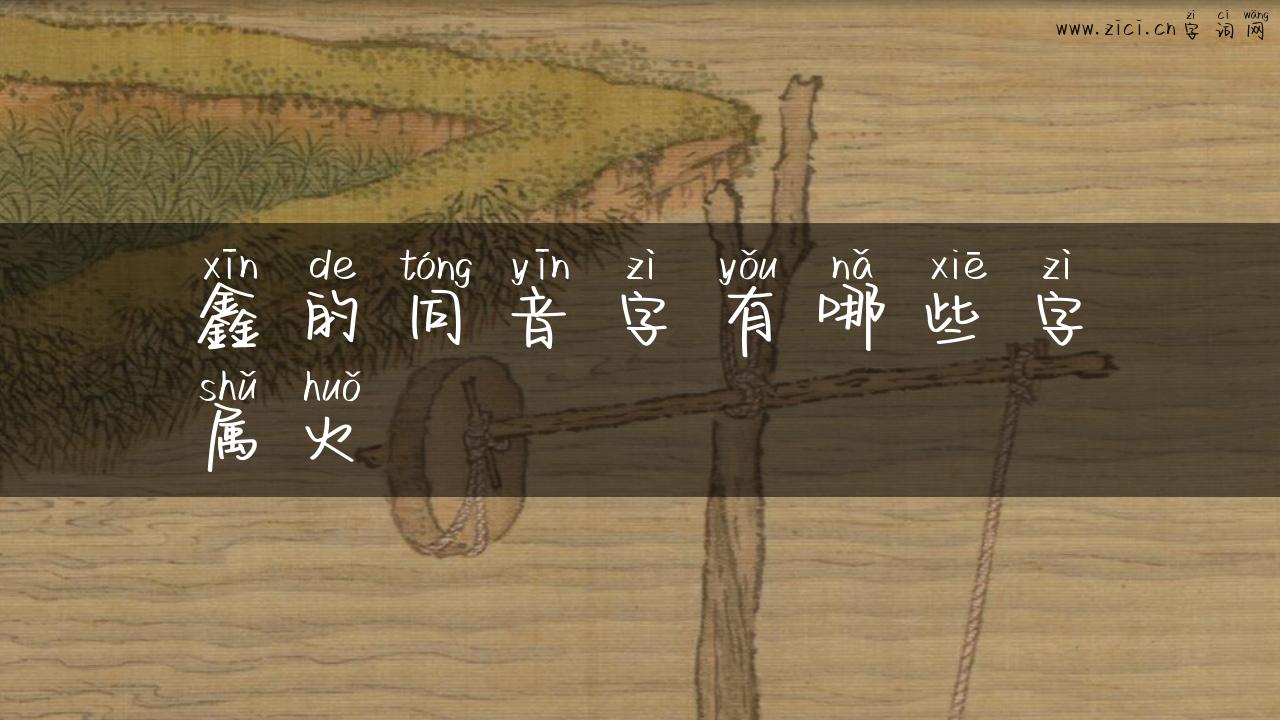 zì cí wǎng
www.zici.cn字词网
xīn de tóng yīn zì yǒu nǎ xiē zì
鑫的同音字有哪些字
shǔ huǒ
属火